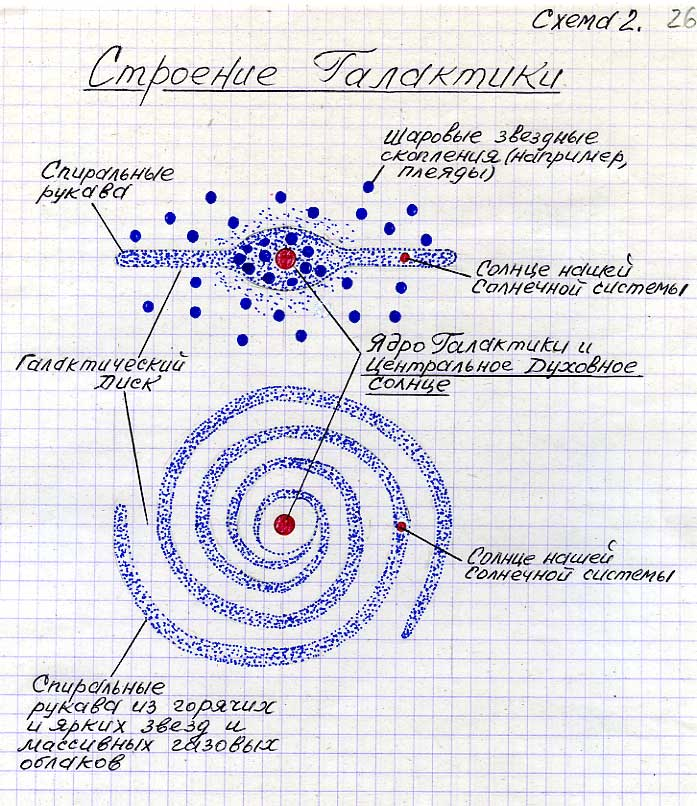 Схема 2. 26
Строение Галактики
Шаровые звездные
скопления (например,
плеяды)
Спиральные
рукава
Солнце нашей
Солнечной системы
Ядро Галактики и
Центральное Духовное
Солнце
Галактический
Диск
Солнце нашей
Солнечной системы
Спиральные
рукава из горячих
и ярких звезд и
массивных газовых
облаков